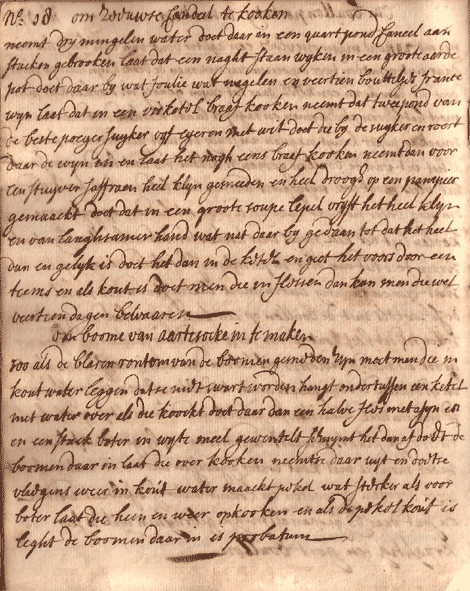 No 18 om vrouwse sandeel te kooken
neemt dry mingelen water doet daar in een quart pond caneel aan
stucken gebrooken laat dat een naght staan wyken in een groote aerde
pot doet daar by wat foulie wat nagelen en veertien bouttelyes france
wyn laat dat in een visketel braaf kooken neemt dat twee pond van
de beste poeyer suyker vyf eyeren met wit doet die by de suyker en roert
daar de wyn in en laat het nogh eens braaf kooken neemt dan voor
een stuyver saffraen heel klyn gesneden en heel droogh op een panvuer
gemaackt doet dat in een groote soupe lepel vryft het heel klyn
en van langhsamer hand wat nat daar by gedaan tot dat het heel
dun en gelyk is doet het dan in de ketel en giet het voors door een
teems en als kout is doet men die in flessen dan kan men die wel
veertien dagen bewaaren
om boome van aartisocke in te maken
soo als de blaren rontom van de boomen gesneden syn moet men die in
kout water leggen dat se niet swart worden hangt ondertussen een ketel
met water over als die koockt doet daar dan een halve fles met asyn in
en een stuck boter in wyte meel gewentelt schuymt het dan af doet de
boomen daar in laat die over kooken neemt se daar uyt en doet se
vliegens weer in kout water maackt pekel wat sterker als voor
boter laat die heen en weer opkooken en als de pekel kout is
leght de boomen daar in is probatum